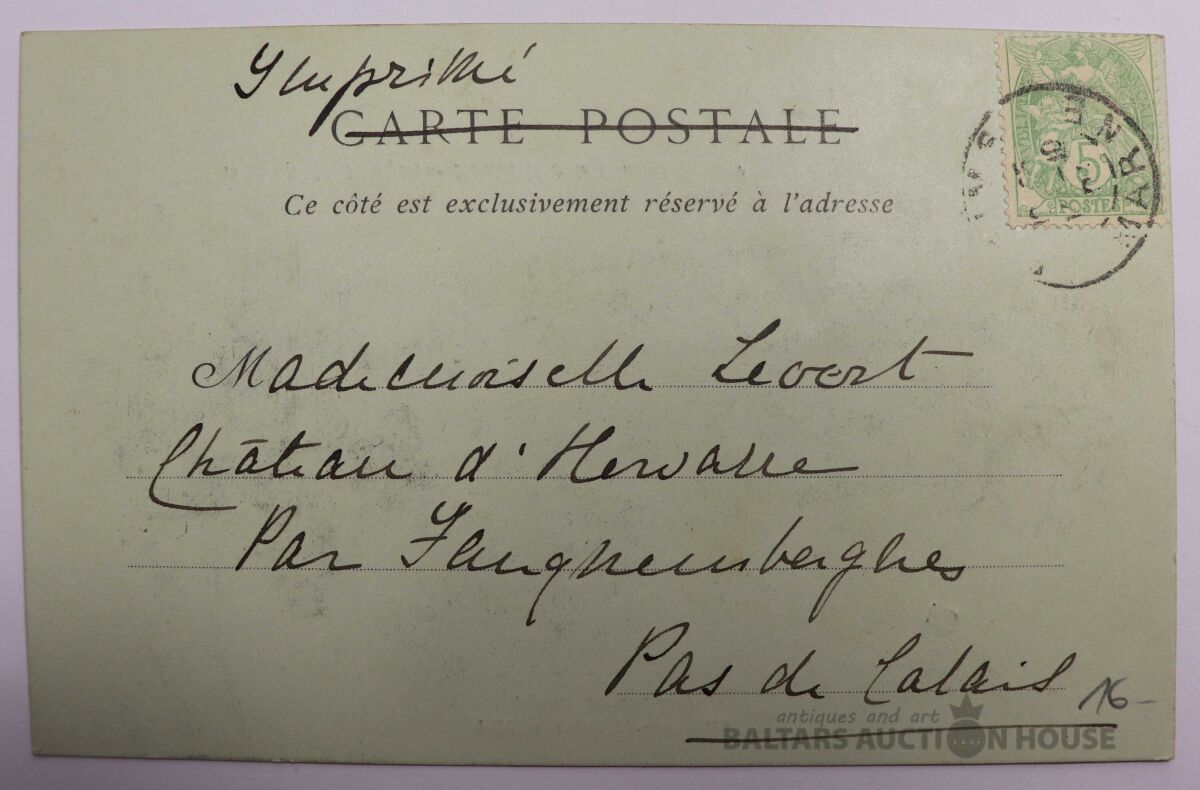 Imprimé
CARTE POSTALE
Ce côté est exclusivement réservé à l'adresse
5
POSTES
MARNE
Mademoiselle
Château d'Hervarre
Par Fauquemberghes
Pas de Calais
16-
antiques and art
BALTARS AUCTION HOUSE